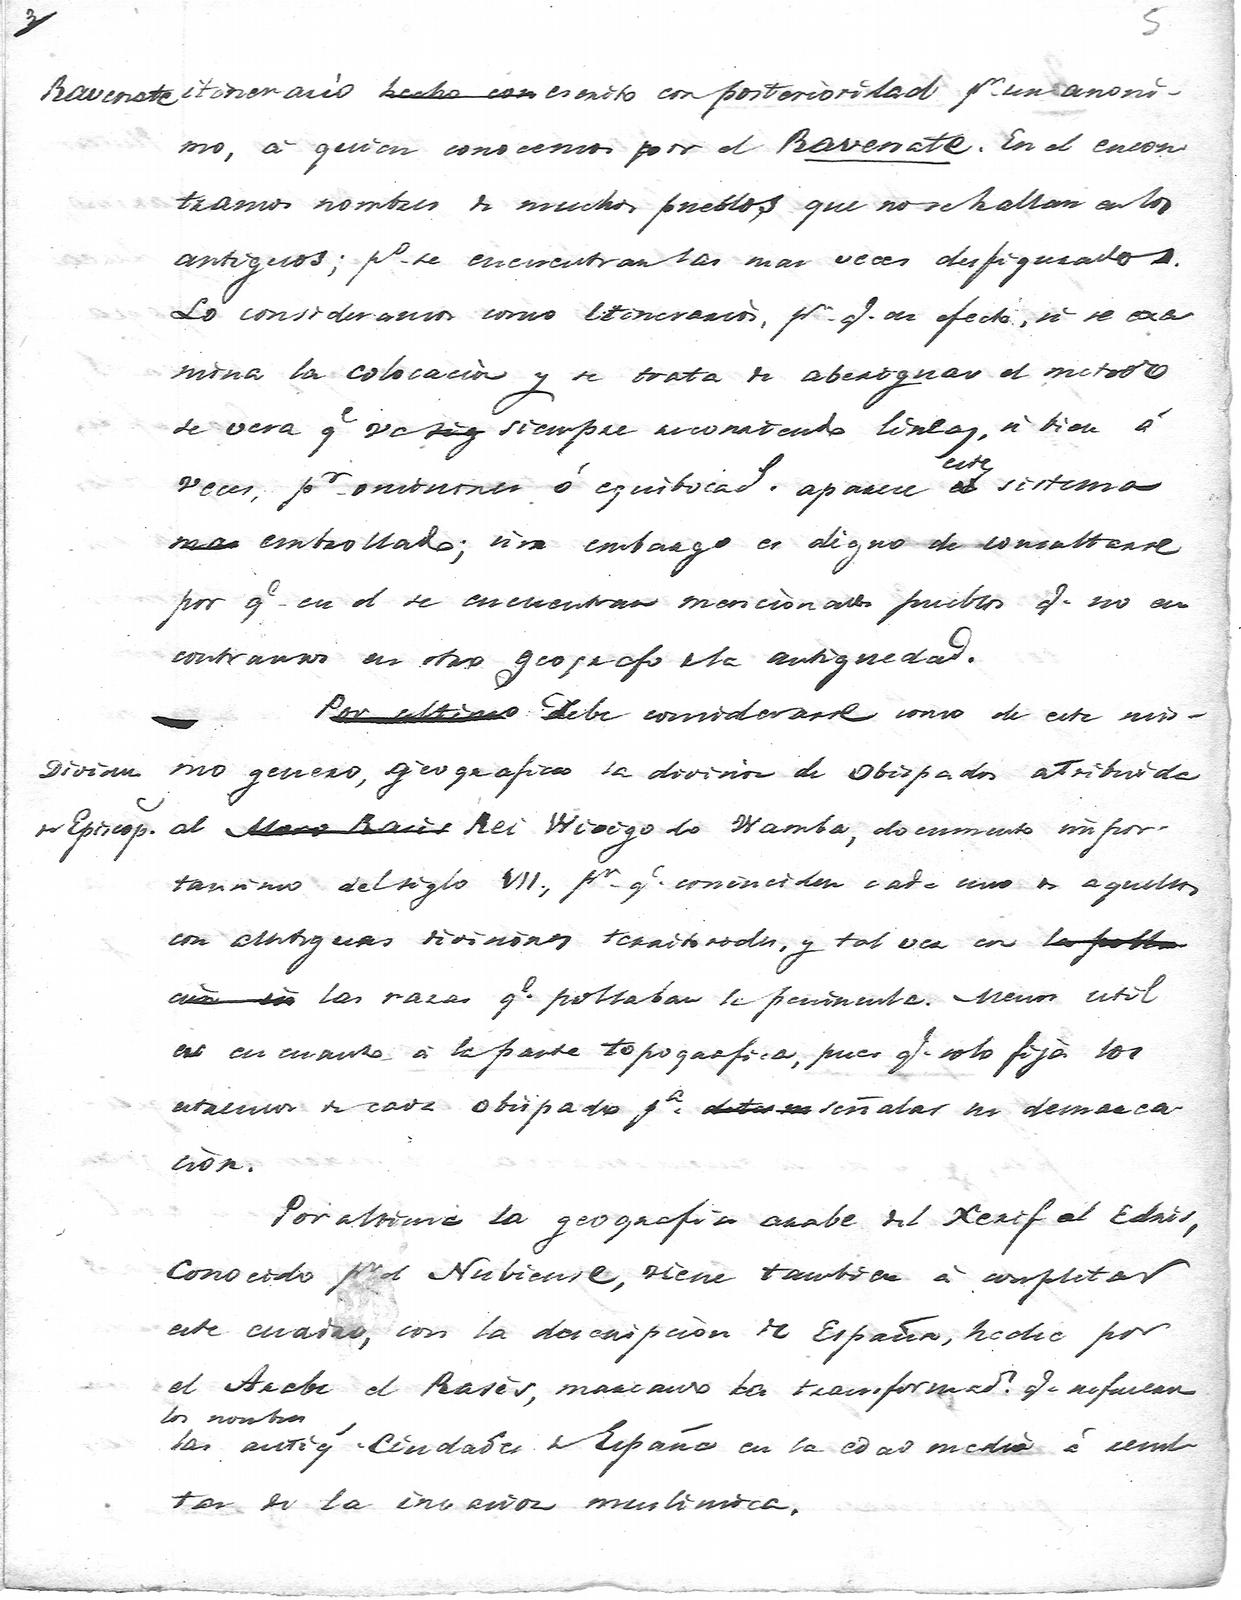 3
5
Ravenate itinerario hecho con escrito con posterioridad pr. un anoni-
mo, á quien conocemos por el Ravenate. En el encon
tramos nombres de muchos pueblos que no se hallan en los
antiguos; po. se encuentran las mas veces desfigurados.
Lo consideramos como Itinerario, pr. q. en efecto, si se exa
mina la colocacion y se trata de aberiguar el metodo
se vera qe va sig siempre recorriendo lineas, si bien á
este
veces, pr. omisiones ó equibocad. aparece el sistema
mas embrollado; sin embargo es digno de consultarse
por qe en el se encuentran mencionados pueblos q. no en
contramos en otro geografo de la antiguedad.
Por ultimo Debe considerarse como de este mis-
Division mo genero, geografico la division de Obispados atribuida
de Episcop. al Moro Rasis Rei Wisigodo Wamba, documento impor-
tantisimo del siglo VII, pr. qe. coninciden cada uno de aquellos
con antiguas divisiones territoriales, y tal vez con la pobla
cion las razas qe. poblaban la peninsula. Menos util
es en cuanto á la parte topografica, pues qe. solo fija los
estremos de cada obispado pa. señalar su demarca
cion.
Por ultimo la geografia arabe del Xerif al Edris,
Conocido pr. el Nubiense, viene tambien á completar
este cuadro, con la descripcion de España, hecha por
el Arabe el Rasis, marcando la transformad. q. sufrieron
los nombres
las antig. Ciudades de España en la edad media á resul
tas de la invasion muslimica.